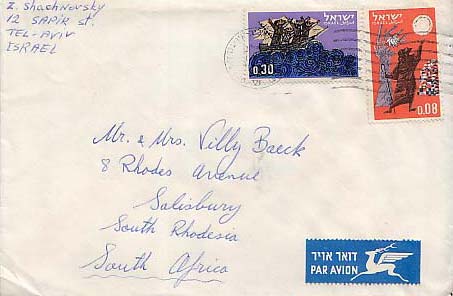 Z. Shachnovsky
12 SAPIR St.
TEL-AVIV
ISRAEL
ישראל
ISRAEL
0.30
ישראל
ISRAEL
0.08
Mr. & Mrs. Villy Baeck
8 Rhodes Avenue
Salisbury
South Rhodesia
South Africa
דואר אויר
PAR AVION